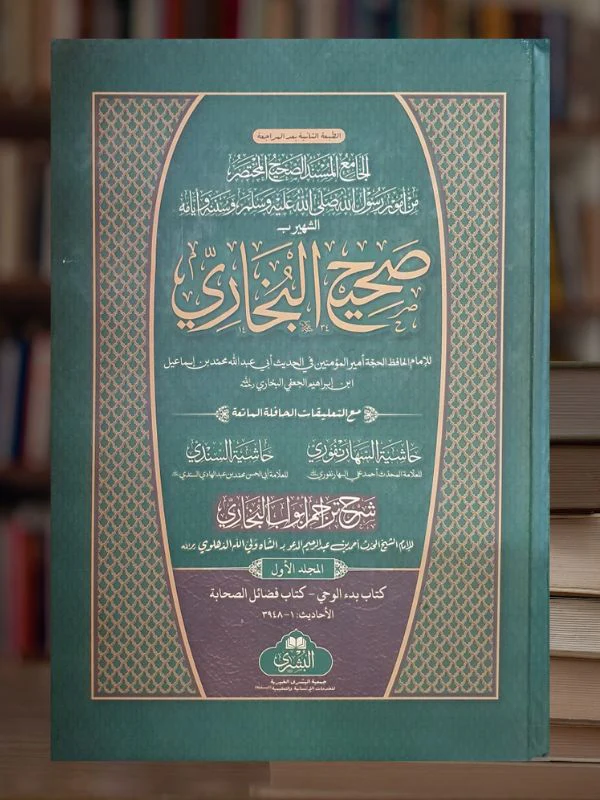 الطبعة الثانية بعد المراجعة
الجامع المسند الصحيح المختصر
من أمور رسول الله صلى الله عليه وسلم وسننه وأيامه
الشهير بـ
صحيح البخاري
للإمام الحافظ الحجة أمير المؤمنين في الحديث أبي عبد الله محمد بن إسماعيل
ابن إبراهيم الجعفي البخاري رحمه الله
مع التعليقات الحافلة الماتعة
حاشية السهارنفوري
للعلامة المحدث أحمد علي السهارنفوري
حاشية السندي
للعلامة أبي الحسن محمد بن عبد الهادي السندي
شرح تراجم أبواب البخاري
للإمام الشيخ المحدث أحمد بن عبد الرحيم المدعو بـ الشاه ولي الله الدهلوي
المجلد الأول
كتاب بدء الوحي - كتاب فضائل الصحابة
الأحاديث: ١-٣٩٤٨
البشرى
جمعية البشرى الخيرية
للخدمات الإنسانية والتعليمية